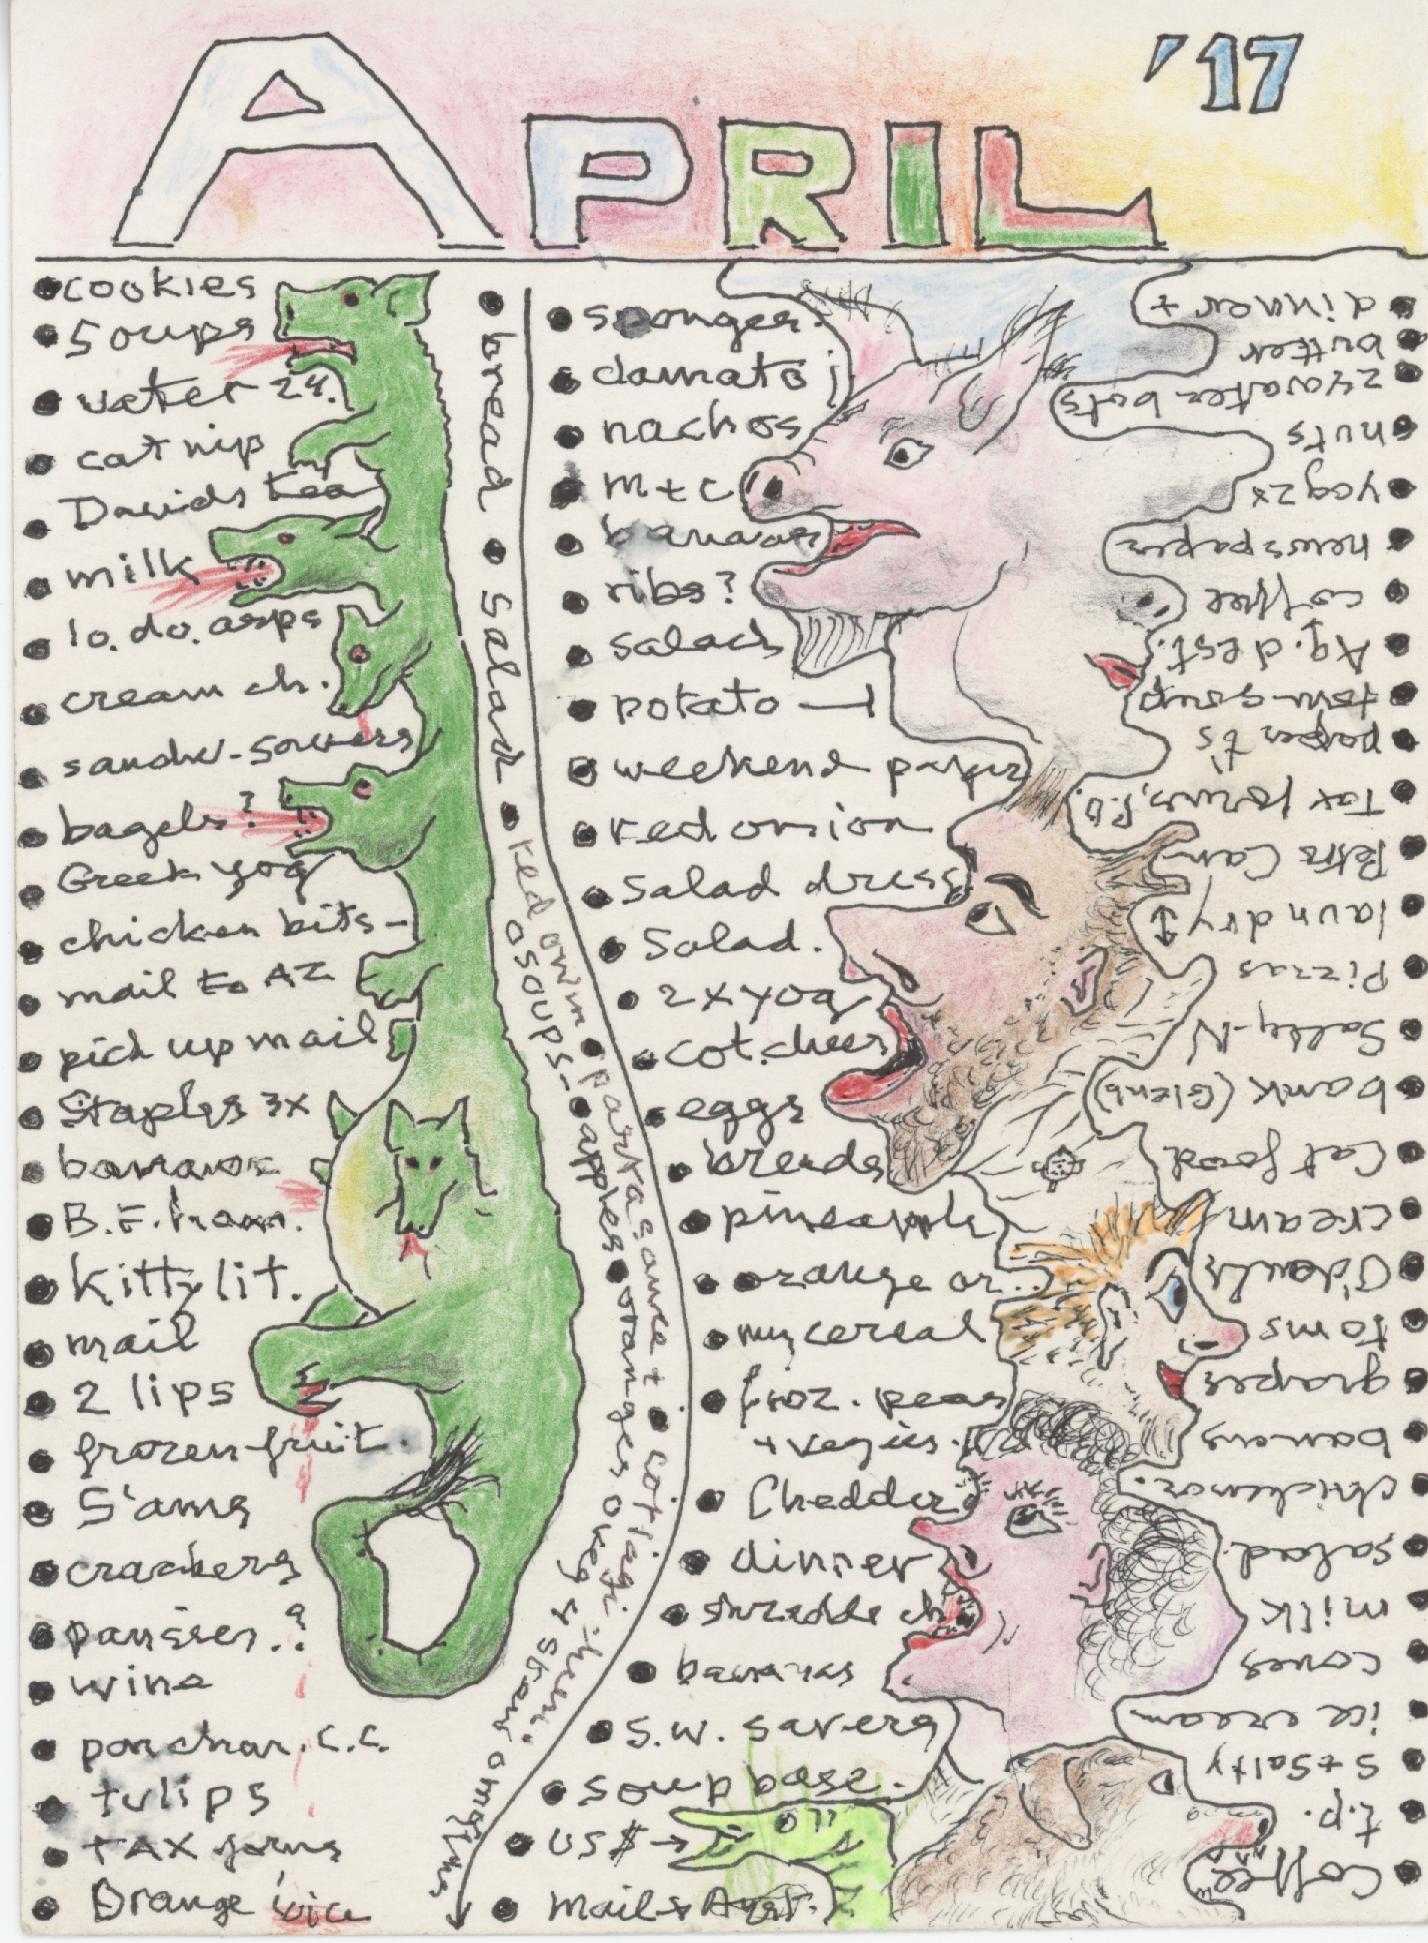 April '17
cookies
Soups
water 24.
cat nip
Davids tea
milk
lo. do. asps
cream ch.
sandw-savers
bagels?
Greek yog
chicken bits-
mail to AZ
pick up mail
Staples 3x
bananas
B.F. ham.
Kitty lit.
mail
2 lips
frozen fruit.
S'ams
crackers
pansies.?
wine
tulips
TAX forms
Orange juice
bread
Salad
red onin
soups-
parta sauce +
apples
oranges
sponges.
damato
nachos
m+c
bananas
ribs?
salads
potato
weekend paper
red onion
Salad dress
Salad.
2xyog
cot.chees
eggs
breads
pineapple
orange or..
my cereal
froz. peas
+ vegies.
Chedder
dinner
shredde ch
bananas
S.W. savers
soup base.
US $→
dinner +
butter
24 water bots
nuts
yog 2x
newspaper
coffee
Aq. dest.
tom-soup
paper t's
Tax forms, P.O.
Pets Can
laundry
Pizzas
Sally-N
bank (Glenb)
Cat food
cream
O'douls
toms
grapes
bananas
chickenoz.
salad.
milk
cones
ice cream
S+Salty
t.p.
Coffee